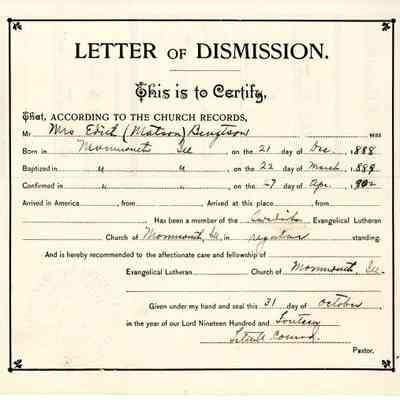 LETTER OF DISMISSION.
This is to Certify,
That, ACCORDING TO THE CHURCH RECORDS,
Mr Mrs Edith (Matson) Bengtson was
Born in Monmouth Ill , on the 21 day of Dec. , 1888
Baptized in " " , on the 22 day of March , 1889
Confirmed in " " , on the 27 day of Apr. , 1902
Arrived in America , from Arrived at this place , from
Has been a member of the Swedish Evangelical Lutheran
Church of Monmouth, Ill, in regular standing.
And is hereby recommended to the affectionate care and fellowship of
Evangelical Lutheran Church of Monmouth, Ill.
Given under my hand and seal this 31 day of October ,
in the year of our Lord Nineteen Hundred and
Pastor.